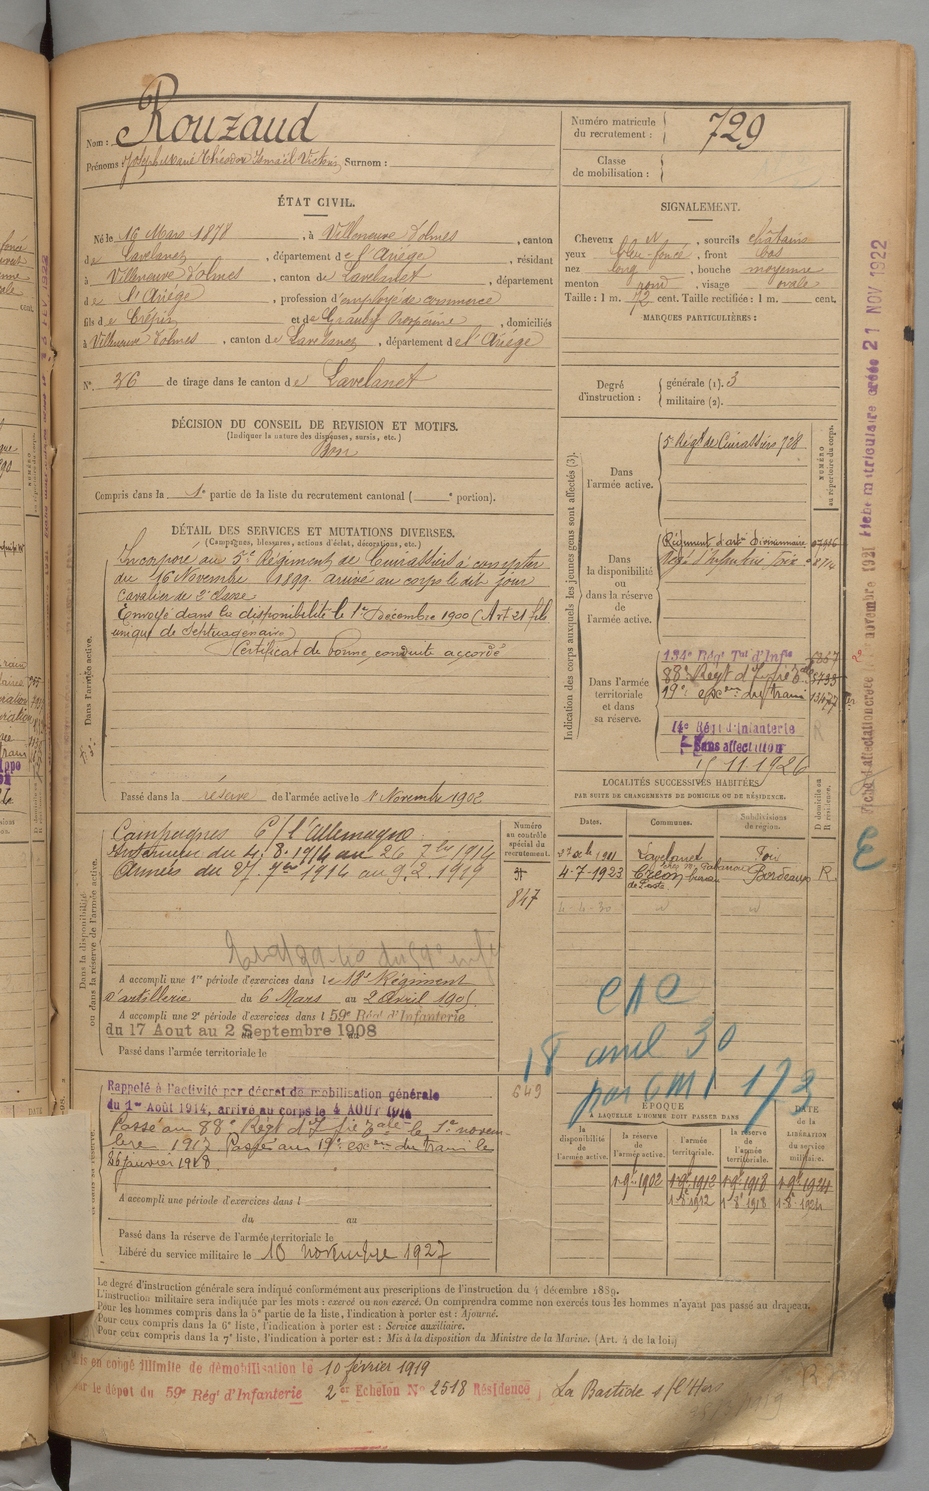 Nom : Rouzaud
Prénoms : Joseph Marie Théodore Ismaël Victorin Surnom :
Numéro matricule du recrutement : 729
Classe de mobilisation :
ÉTAT CIVIL.
Né le 16 Mars 1878, à Villeneuve d'olmes, canton
de Lavelanet, département de l'Ariège, résidant
à Villeneuve d'olmes, canton de Lavelanet, département
de l'Ariège, profession d'employé de commerce
fils de Crépin et de Grauby Prospérine, domiciliés
à Villeneuve d'olmes, canton de Lavelanet, département de l'Ariège
N° 36 de tirage dans le canton de Lavelanet
SIGNALEMENT.
Cheveux sourcils châtains
yeux bleu-foncé, front bas
nez long, bouche moyenne
menton rond, visage ovale
Taille : 1 m. 72 cent. Taille rectifiée : 1 m. cent.
MARQUES PARTICULIÈRES :
Degré d'instruction : générale (1). 3
militaire (2).
DÉCISION DU CONSEIL DE REVISION ET MOTIFS.
(Indiquer la nature des dispenses, sursis, etc.)
Bon
Compris dans la 1e partie de la liste du recrutement cantonal ( e portion).
DÉTAIL DES SERVICES ET MUTATIONS DIVERSES.
(Campagnes, blessures, actions d'éclat, décorations, etc.)
Dans l'armée active.
Incorporé au 5e Régiment de Cuirassiers à compter
du 16 Novembre 1899 arrivé au corps le dit jour
cavalier de 2e classe
Envoyé dans la disponibilité le 1er Décembre 1900 (Art 21 fils
unique de Septuagénaire)
Certificat de bonne conduite accordé
Passé dans la réserve de l'armée active le 1 Novembre 1902
Indication des corps auxquels les jeunes gens sont affectés (3).
NUMÉRO au répertoire du corps.
Dans l'armée active.
5e Régt de Cuirassiers 728
Dans la disponibilité ou dans la réserve de l'armée active.
Régiment d'artie Divisionnaire
Régt d'Infanterie Foix
Dans l'armée territoriale et dans sa réserve.
134e Régt Tal d'Infie
88e Régt d'Infie
19e escon du train
14e Régt d'Infanterie
Sans affectation
15.11.1926
LOCALITÉS SUCCESSIVES HABITÉES
PAR SUITE DE CHANGEMENTS DE DOMICILE OU DE RÉSIDENCE.
Dates. Communes. Subdivisions de région. D domicile ou R résidence.
1911 Lavelanet Foix
4-7-1923 Créon Bordeaux R
4-4-30
Dans la disponibilité ou dans la réserve de l'armée active.
Campagnes C/ l'Allemagne :
Intérieur du 4.8.1914 au 26 7bre 1914
Armées du 27 7bre 1914 au 9.2.1919
Numéro au contrôle spécial du recrutement.
847
A accompli une 1re période d'exercices dans le 18e Régiment
d'artillerie du 6 Mars au 2 Avril 1905.
A accompli une 2e période d'exercices dans l 59e Régt d'Infanterie
du 17 Aout au 2 Septembre 1908
Passé dans l'armée territoriale le
CAC
18 avril 30
649
Rappelé à l'activité par décret de mobilisation générale
du 1er Août 1914, arrivé au corps le 4 AOUT 1914
Passé au 88e Régt d'Infie le 1er novem-
bre 1917 Passé au 19e escon du train le
26 janvier 1918.
A accompli une période d'exercices dans l
du au
Passé dans la réserve de l'armée territoriale le
Libéré du service militaire le 10 novembre 1927
ÉPOQUE
A LAQUELLE L'HOMME DOIT PASSER DANS
la disponibilité de l'armée active. la réserve de l'armée active. l'armée territoriale. la réserve de l'armée territoriale. DATE de la LIBÉRATION du service militaire.
1-9bre 1902 1-9bre 1912 1-9bre 1918 1-9bre 1924
1-8bre 1912 1-8bre 1918 1-8bre 1924
Le degré d'instruction générale sera indiqué conformément aux prescriptions de l'instruction du 4 décembre 1889.
L'instruction militaire sera indiquée par les mots : exercé ou non exercé. On comprendra comme non exercés tous les hommes n'ayant pas passé au drapeau.
Pour les hommes compris dans la 5e partie de la liste, l'indication à porter est : Ajourné.
Pour ceux compris dans la 6e liste, l'indication à porter est : Service auxiliaire.
Pour ceux compris dans la 7e liste, l'indication à porter est : Mis à la disposition du Ministre de la Marine. (Art. 4 de la loi)
Mis en congé illimité de démobilisation le 10 février 1919
par le dépôt du 59e Régt d'Infanterie 2e Echelon N° 2518 Résidence, La Bastide s/l'Hers
Fiche matriculaire créée 21 NOV 1922